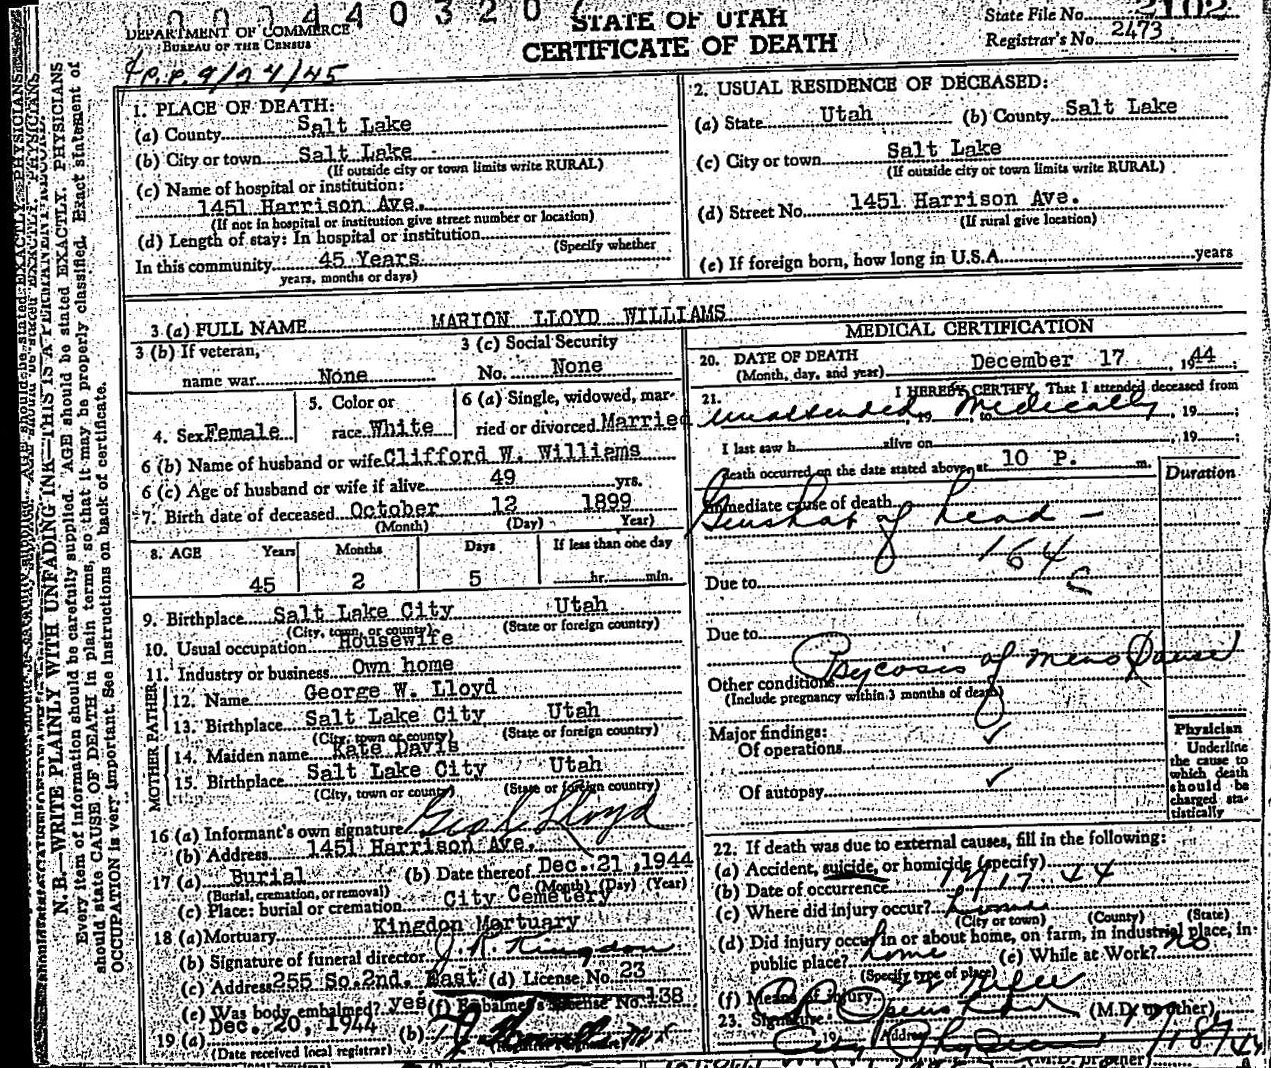 0 0 0 4 4 0 3 2 0 7
DEPARTMENT OF COMMERCE
BUREAU OF THE CENSUS
STATE OF UTAH
CERTIFICATE OF DEATH
State File No. 2102
Registrar's No. 2473
9/24/45
1. PLACE OF DEATH:
(a) County Salt Lake
(b) City or town Salt Lake
(If outside city or town limits write RURAL)
(c) Name of hospital or institution:
1451 Harrison Ave.
(If not in hospital or institution give street number or location)
(d) Length of stay: In hospital or institution
(Specify whether
In this community 45 Years
years, months or days)
2. USUAL RESIDENCE OF DECEASED:
(a) State Utah (b) County Salt Lake
(c) City or town Salt Lake
(If outside city or town limits write RURAL)
(d) Street No. 1451 Harrison Ave.
(If rural give location)
(e) If foreign born, how long in U.S.A. years
3 (a) FULL NAME MARION LLOYD WILLIAMS
3 (b) If veteran,
name war None
3 (c) Social Security
No. None
4. Sex Female
5. Color or
race White
6 (a) Single, widowed, mar-
ried or divorced Married
6 (b) Name of husband or wife Clifford W. Williams
6 (c) Age of husband or wife if alive 49 yrs.
7. Birth date of deceased October 12 1899
(Month) (Day) Year)
8. AGE Years Months Days If less than one day
45 2 5 hr. min.
9. Birthplace Salt Lake City Utah
(City, town, or county) (State or foreign country)
10. Usual occupation Housewife
11. Industry or business Own home
FATHER
12. Name George W. Lloyd
13. Birthplace Salt Lake City Utah
(City, town or county) (State or foreign country)
MOTHER
14. Maiden name Kate Davis
15. Birthplace Salt Lake City Utah
(City, town or county) (State or foreign country)
16 (a) Informant's own signature Lloyd
(b) Address 1451 Harrison Ave.
17 (a) Burial (b) Date thereof Dec. 21, 1944
(Burial, cremation, or removal) (Month) (Day) (Year)
(c) Place: burial or cremation City Cemetery
18 (a) Mortuary Kingdon Mortuary
(b) Signature of funeral director J. R. Kingdon
(c) Address 255 So. 2nd. East (d) License No. 23
(e) Was body embalmed? yes (f) Embalmer's License No. 138
19 (a) Dec. 20, 1944 (b)
(Date received local registrar)
MEDICAL CERTIFICATION
20. DATE OF DEATH
(Month, day, and year) December 17, 1944;
21. I HEREBY CERTIFY, That I attended deceased from
unattended, 19 to Medically, 19 ;
I last saw h alive on , 19 ;
Death occurred on the date stated above, at 10 P. m.
Duration
Immediate cause of death
Gunshot of head -
164
c
Due to
Due to
Psycosis of menopause
Other conditions
(Include pregnancy within 3 months of death)
Major findings:
Of operations ✓
Of autopsy ✓
Physician
Underline
the cause to
which death
should be
charged sta-
tistically
22. If death was due to external causes, fill in the following:
(a) Accident, suicide, or homicide (specify)
(b) Date of occurrence 12/17 44
(c) Where did injury occur? home
(City or town) (County) (State)
(d) Did injury occur in or about home, on farm, in industrial place, in
public place? home (e) While at Work? no
(Specify type of place)
(f) Means of injury 22 Rifle
23. Signature (M.D. or other)
Address City Physician
N. B.—WRITE PLAINLY WITH UNFADING INK—THIS IS A PERMANENT RECORD.
Every item of information should be carefully supplied. AGE should be stated EXACTLY. PHYSICIANS
should state CAUSE OF DEATH in plain terms, so that it may be properly classified. Exact statement of
OCCUPATION is very important. See instructions on back of certificate.